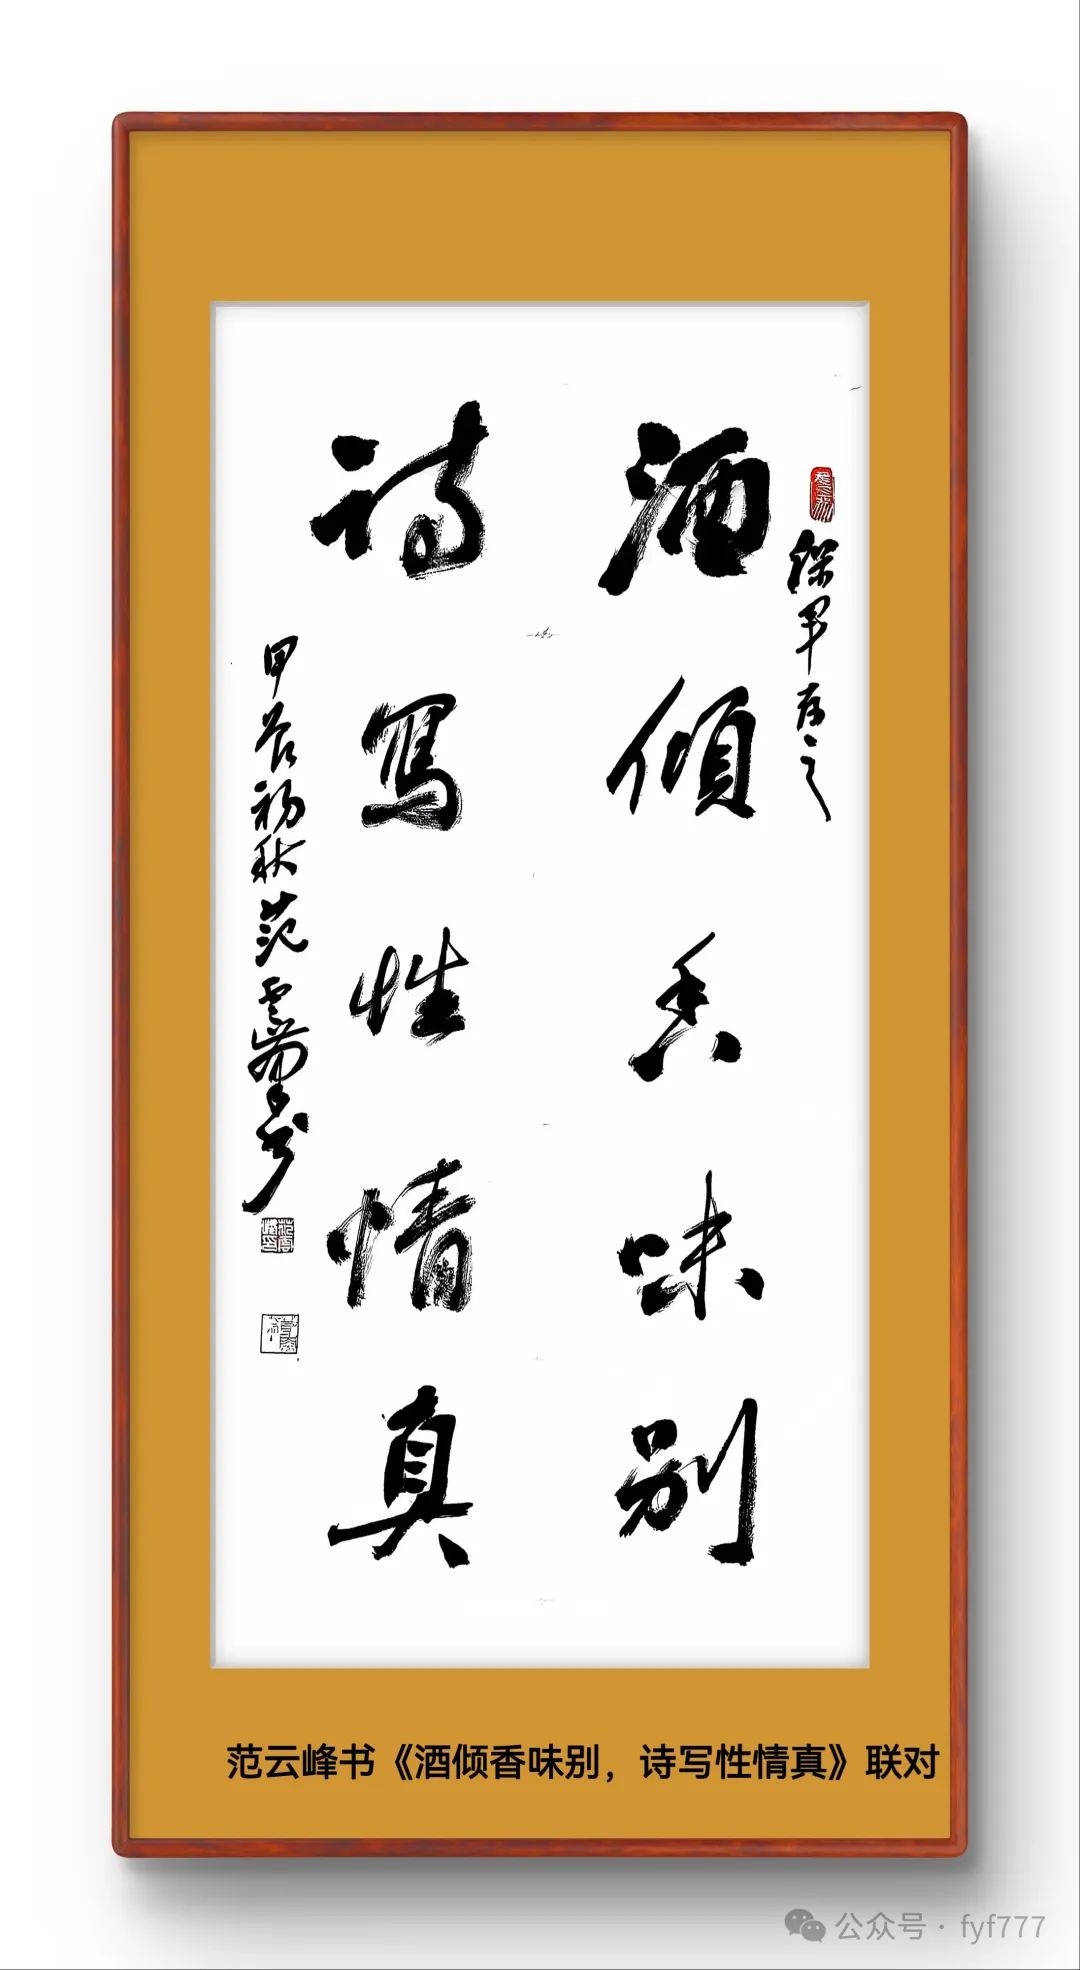 军存之
酒傾香味别
詩寫性情真
甲辰初秋范雲峰书
范云峰书《酒倾香味别，诗写性情真》联对
公众号·fyf777